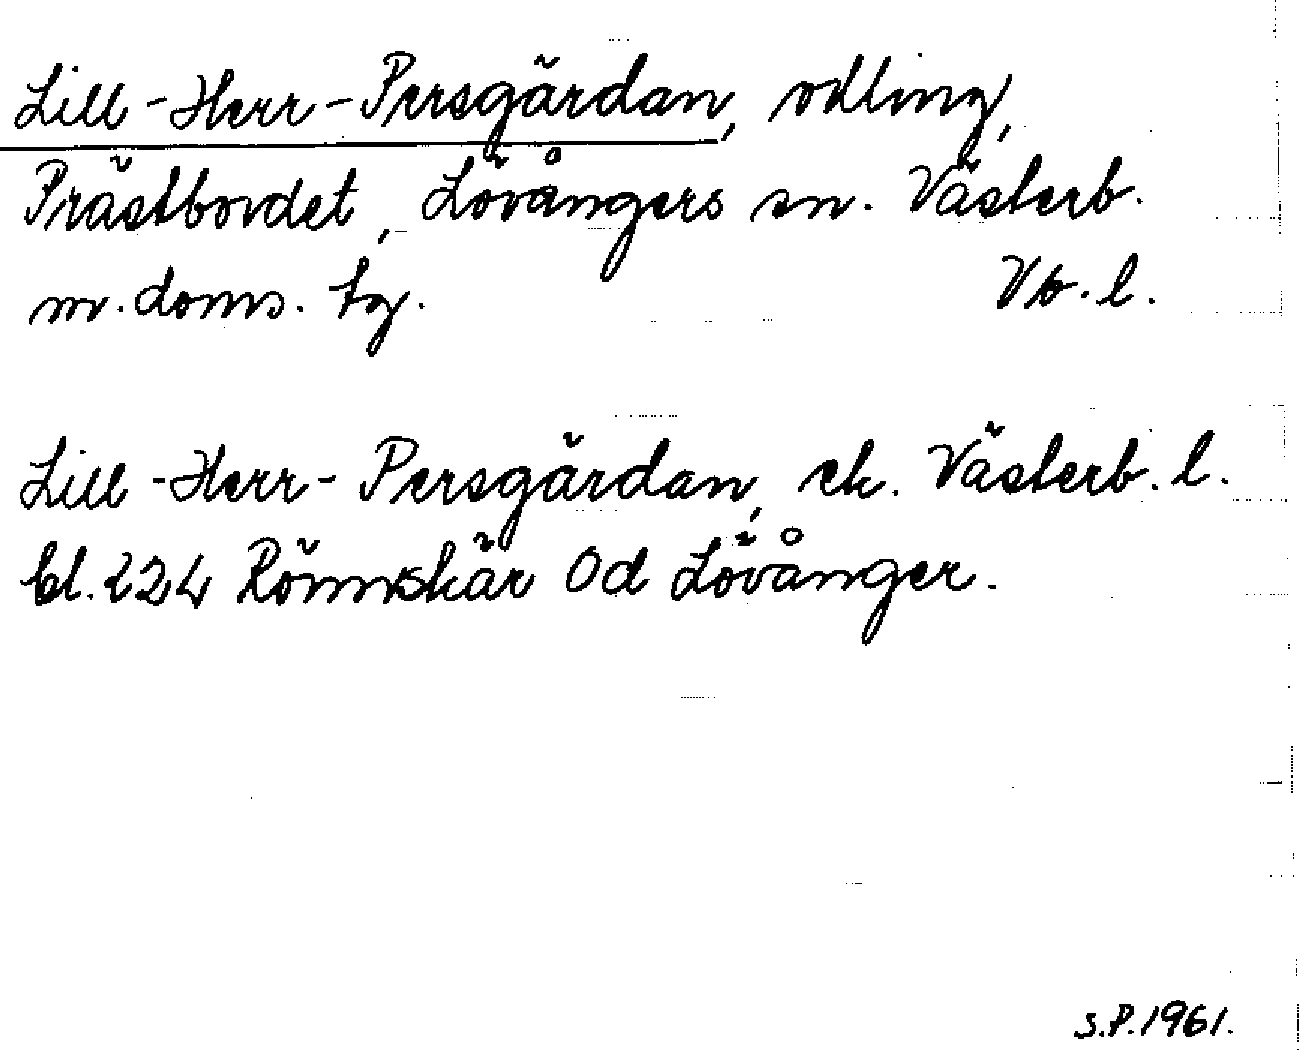 Lill-Herr-Persgärdan, odling,
Prästbordet, Lövångers sn. Västerb.
m. doms. tg. Vb. l.
Lill-Herr-Persgärdan, ek. Västerb. l.
bl. 224 Rönnskär Od Lövånger.
S.P. 1961.